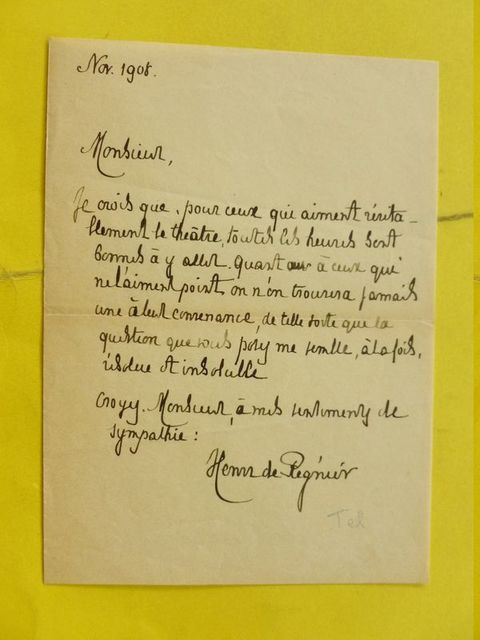 Nov. 1908.
Monsieur,
Je crois que, pour ceux qui aiment vérita-
blement le théâtre, toutes les heures sont
bonnes à y aller. Quant à ceux qui
ne l'aiment point on n'en trouvera jamais
une à leur convenance, de telle sorte que la
question que vous posez me semble, à la fois,
résolue et insoluble
Croyez, Monsieur, à mes sentiments de
sympathie :
Henri de Régnier
Tel